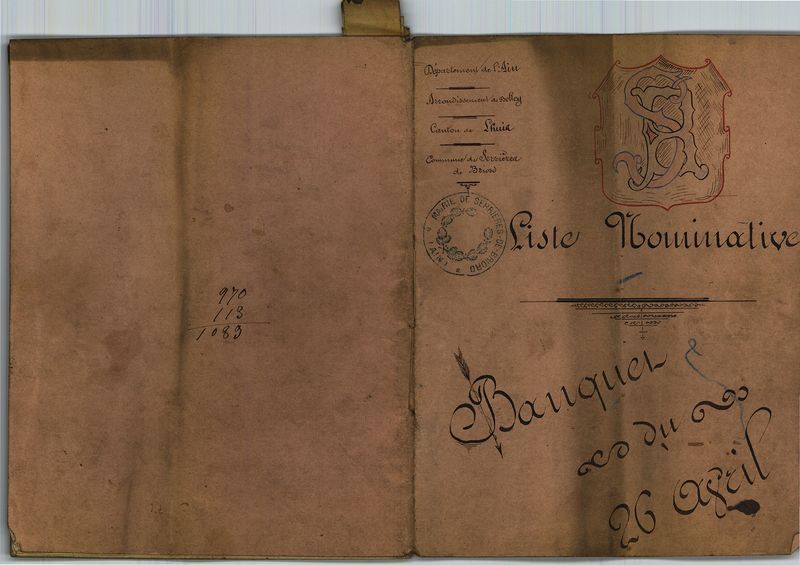 970
113
1083
Département de l'Ain
Arrondissement de Belley
Canton de Lhuis
Commune de Serrières
de Briord
MAIRIE DE SERRIÈRES-DE-BRIORD
(AIN)
Liste Nominative
Banquet
du
26 Avril